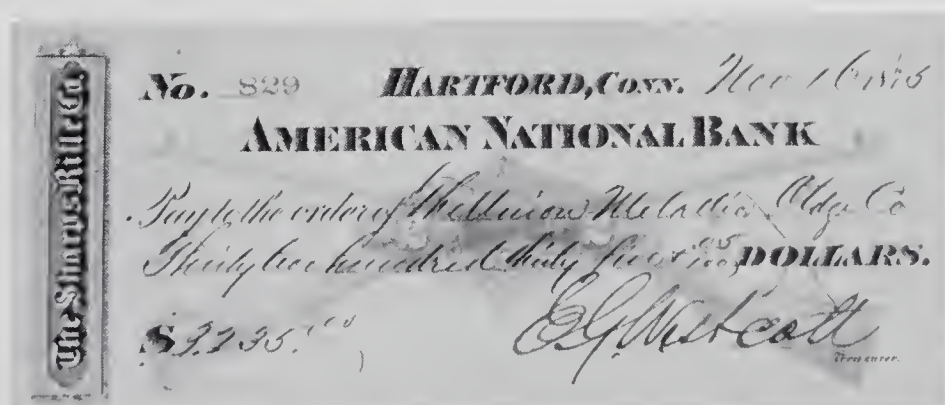 The Sharps Rifle Co.
No. 829 HARTFORD, CONN. Nov 16 1875
AMERICAN NATIONAL BANK
Pay to the order of The Union Metallic Ctdge Co
Thirty two hundred thirty five & DOLLARS.
$3235.
E.G. Westcott
Treasurer.